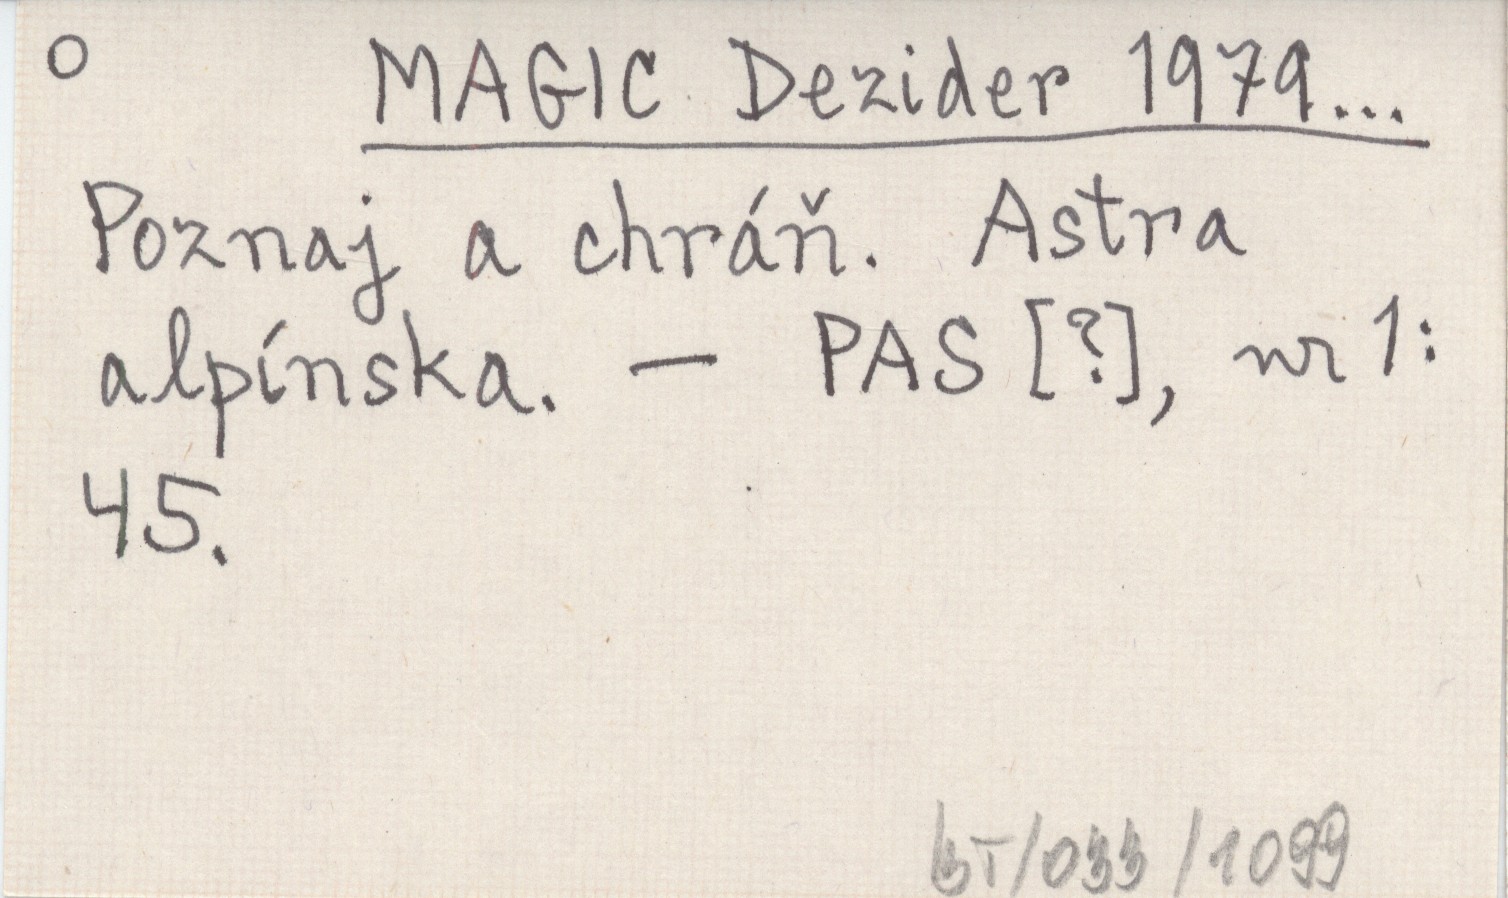 O MAGIC Dezider 1979...
Poznaj a chráň. Astra
alpínska. — PAS [?], nr 1:
45.
BT/033/1099